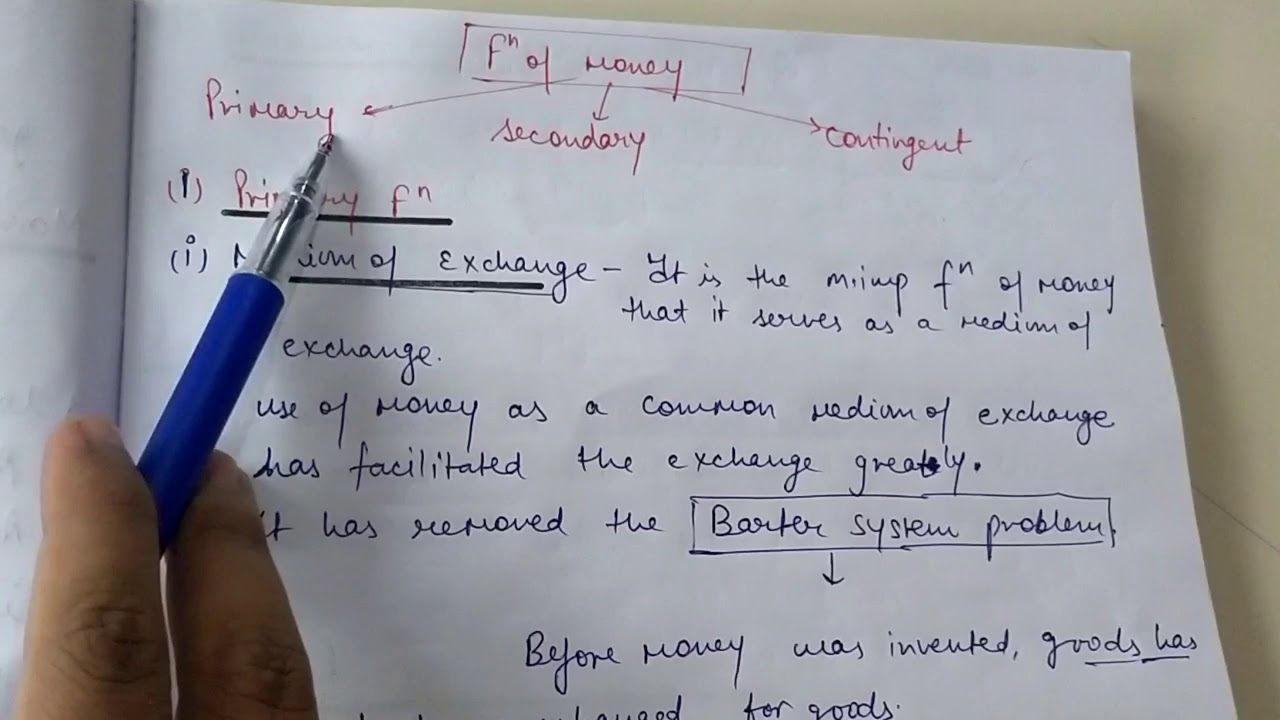 fn of money
Primary secondary contingent
(I) Primary fn
(i) Medium of Exchange - It is the m.imp fn of money
that it serves as a medium of
exchange.
use of money as a common medium of exchange
has facilitated the exchange greatly.
it has removed the Barter system problem
Before money was invented, goods has
for goods.